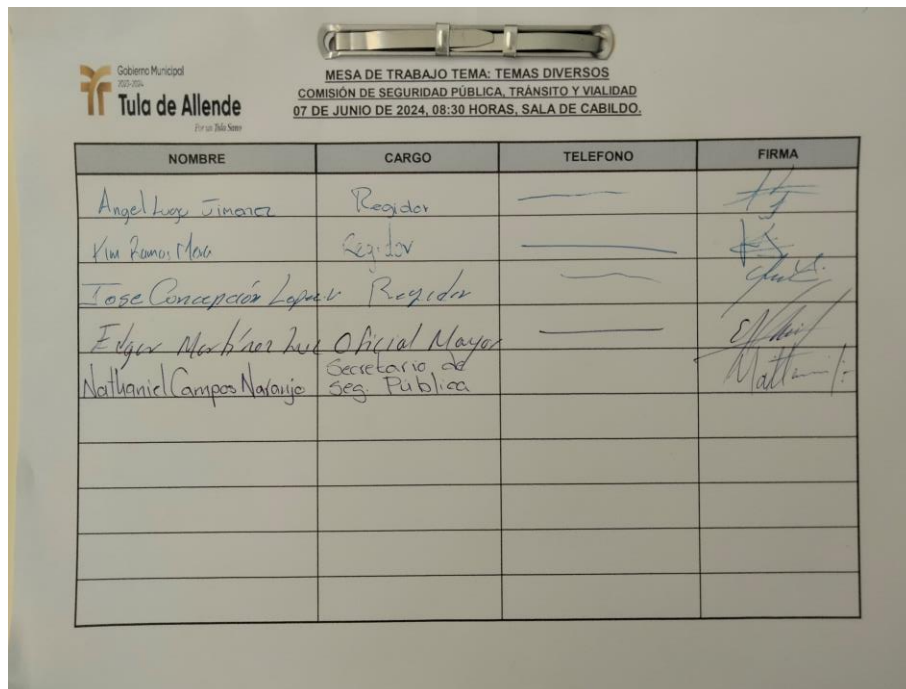 Gobierno Municipal
Tula de Allende
Por un Tula Sano
MESA DE TRABAJO TEMA: TEMAS DIVERSOS
COMISIÓN DE SEGURIDAD PÚBLICA, TRÁNSITO Y VIALIDAD
07 DE JUNIO DE 2024, 08:30 HORAS, SALA DE CABILDO.
NOMBRE CARGO TELEFONO FIRMA
Angel Lugo Jimenez Regidor
Kim Ramos Mora Regidor
Jose Concepción Lopez Regidor
Edgar Martínez Oficial Mayor
Nathaniel Campos Naranjo Secretario de
Seg. Pública